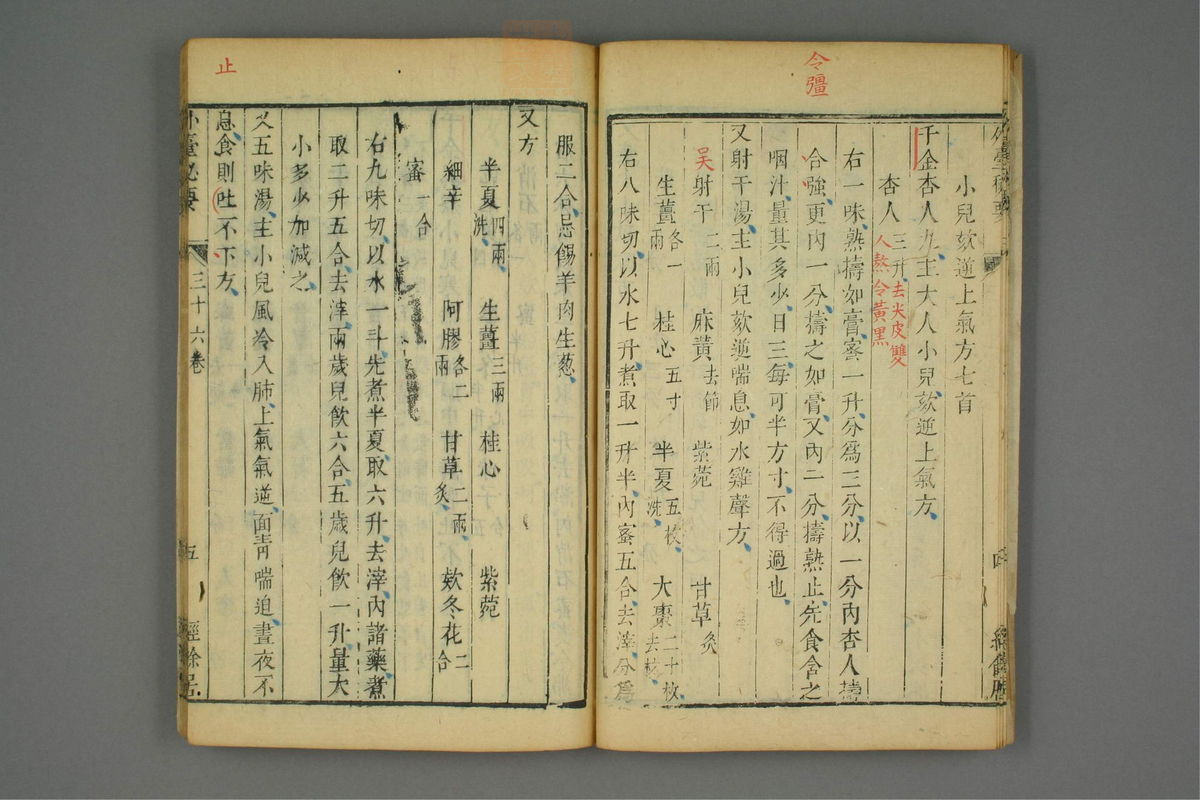 令彊
小兒欬逆上氣方七首
千金杏人丸主大人小兒欬逆上氣方
杏人三升去尖皮雙人熬令黃黑
右一味熟擣如膏蜜一升分爲三分以一分內杏人擣
令強更內一分擣之如膏又內一分擣熟止先食含之
咽汁量其多少日三每可半方寸不得過也
又射干湯主小兒欬逆喘息如水雞聲方
吳射干二兩 麻黃去節 紫菀 甘草炙
生薑各一兩 桂心五寸 半夏五枚洗 大棗二十枚去核
右八味切以水七升煮取一升半內蜜五合去滓分爲
四
經餘居
止
服二合忌餳羊肉生葱
又方
半夏四兩洗 生薑三兩 桂心 紫菀
細辛 阿膠各二兩 甘草二兩炙 欵冬花二合
蜜一合
右九味切以水一斗先煮半夏取六升去滓內諸藥煮
取二升五合去滓兩歲兒飲六合五歲兒飲一升量大
小多少加減之
又五味湯主小兒風冷入肺上氣氣逆面青喘迫晝夜不
息食則吐不下方
外臺必要 三十六卷 五 經餘居